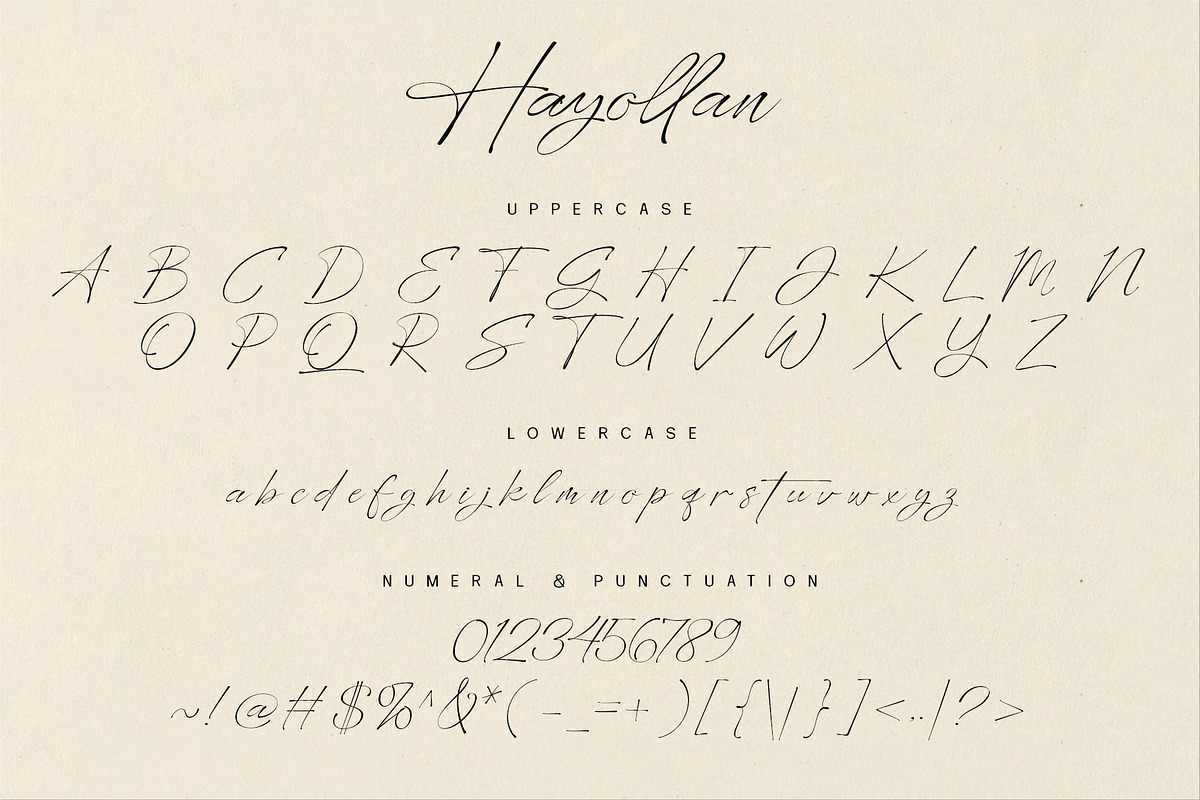 Hayollan
UPPERCASE
A B C D E F G H I J K L M N
O P Q R S T U V W X Y Z
LOWERCASE
a b c d e f g h i j k l m n o p q r s t u v w x y z
NUMERAL & PUNCTUATION
0123456789
~!@#$%^&*(-_=+)[{\|}]<,.|?>